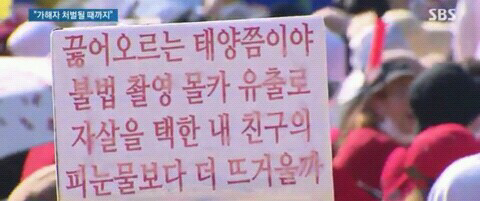 "가해자 처벌될 때까지"
SBS
끓어오르는 태양쯤이야
불법 촬영 몰카 유출로
자살을 택한 내 친구의
피눈물보다 더 뜨거울까